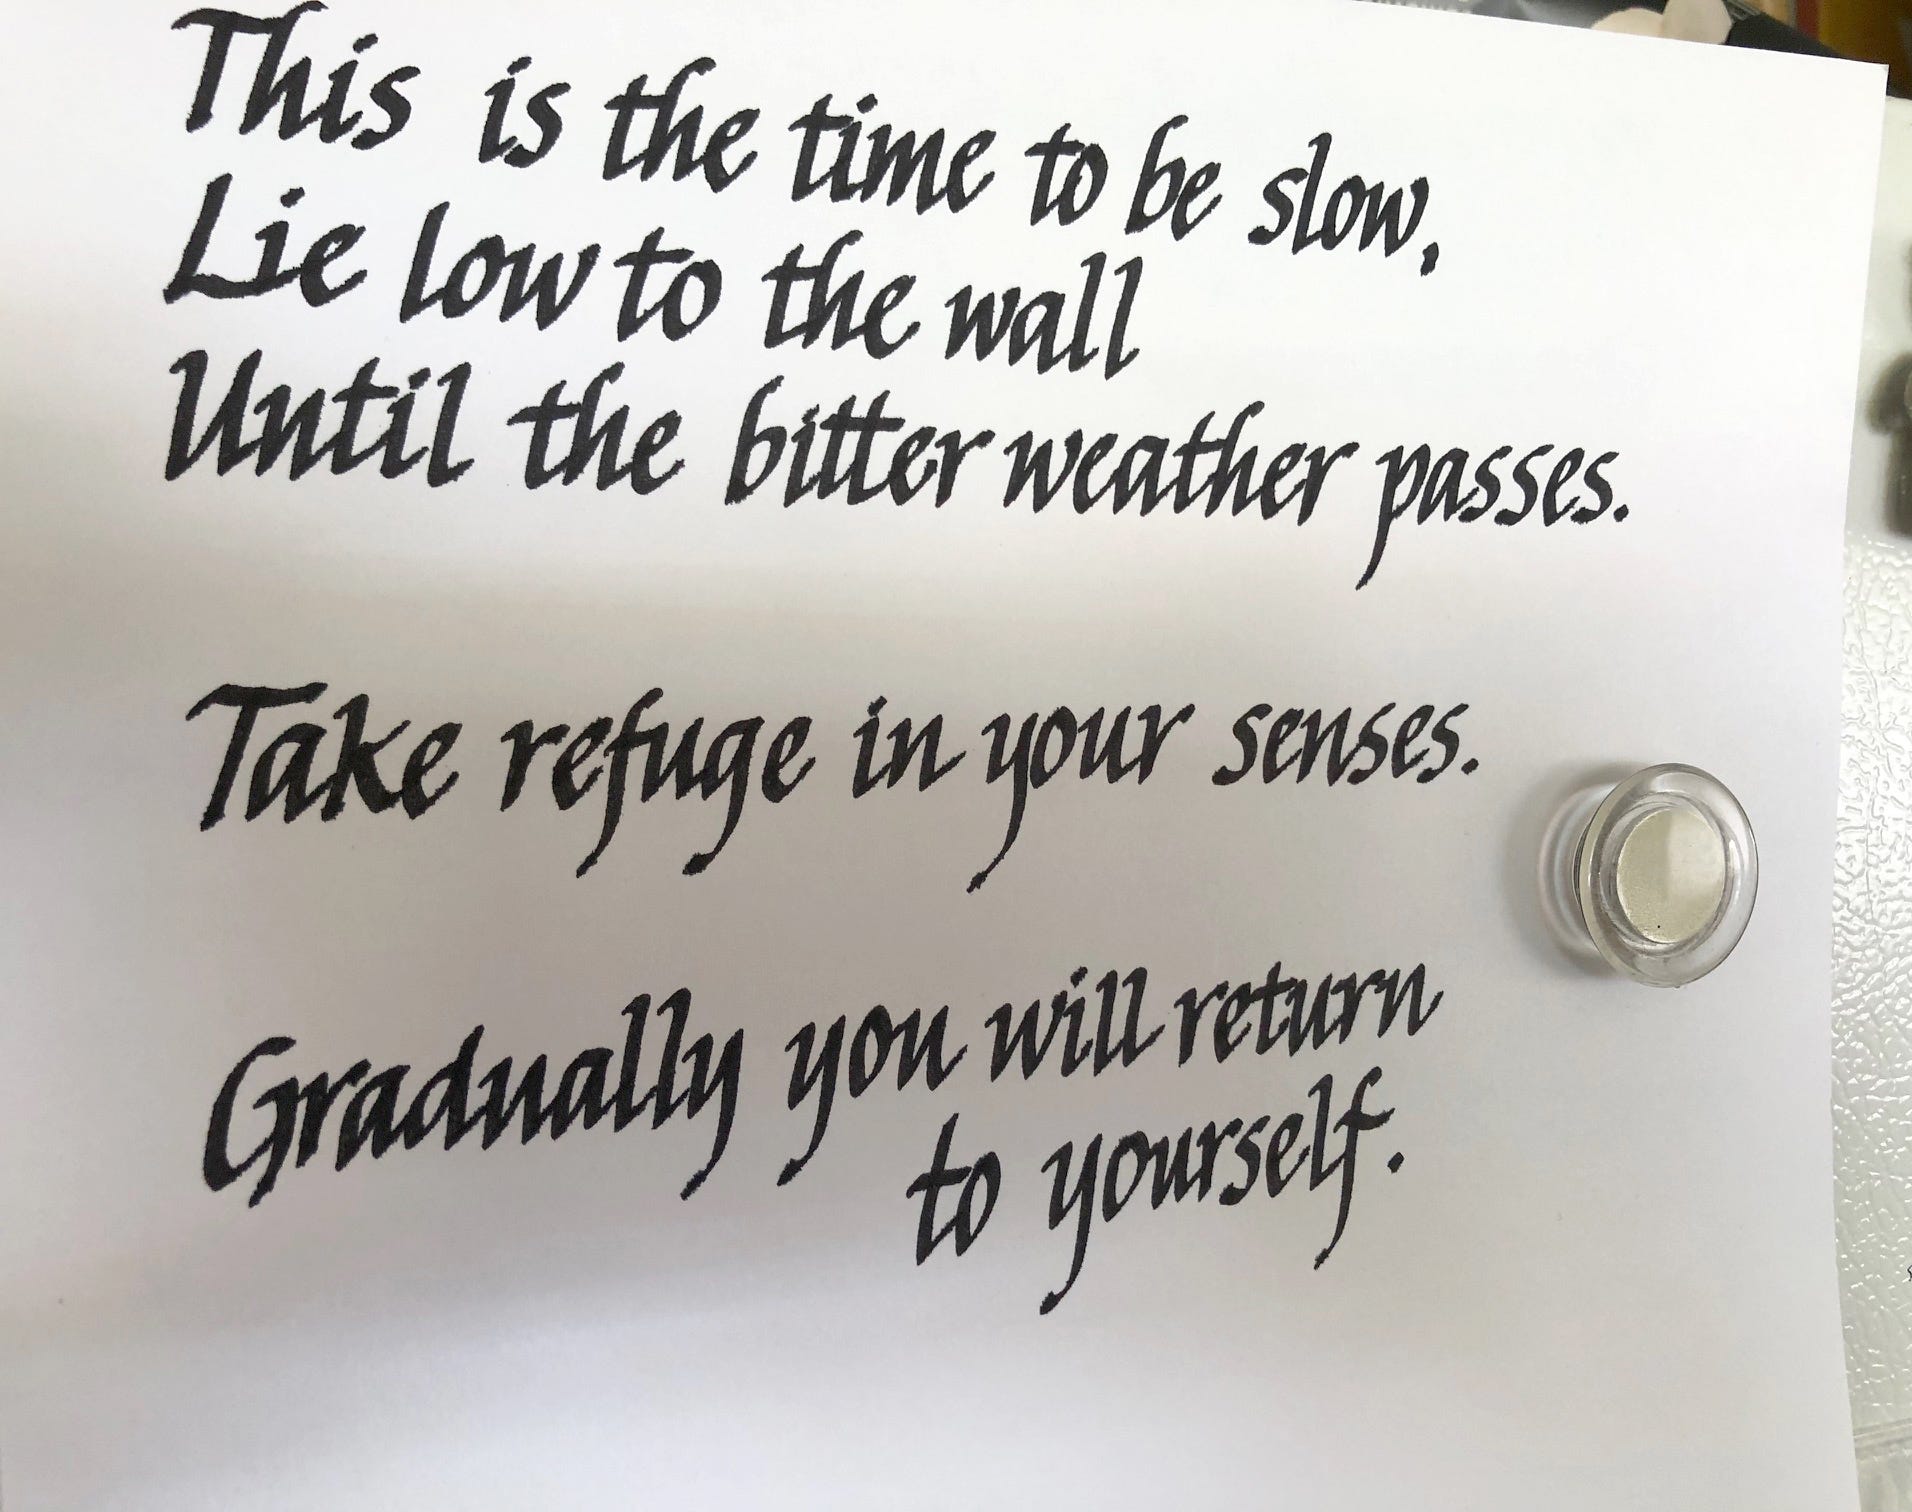 This is the time to be slow,
Lie low to the wall
Until the bitter weather passes.
Take refuge in your senses.
Gradually you will return
to yourself.